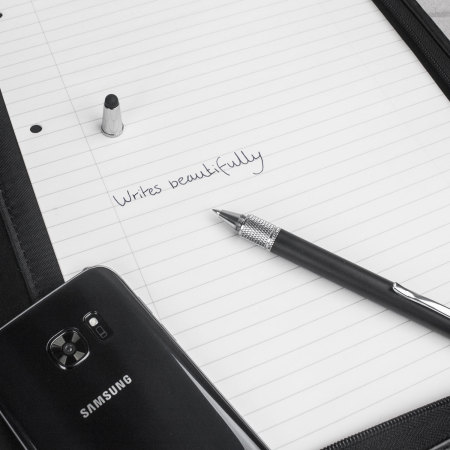 Writes beautifully
SAMSUNG